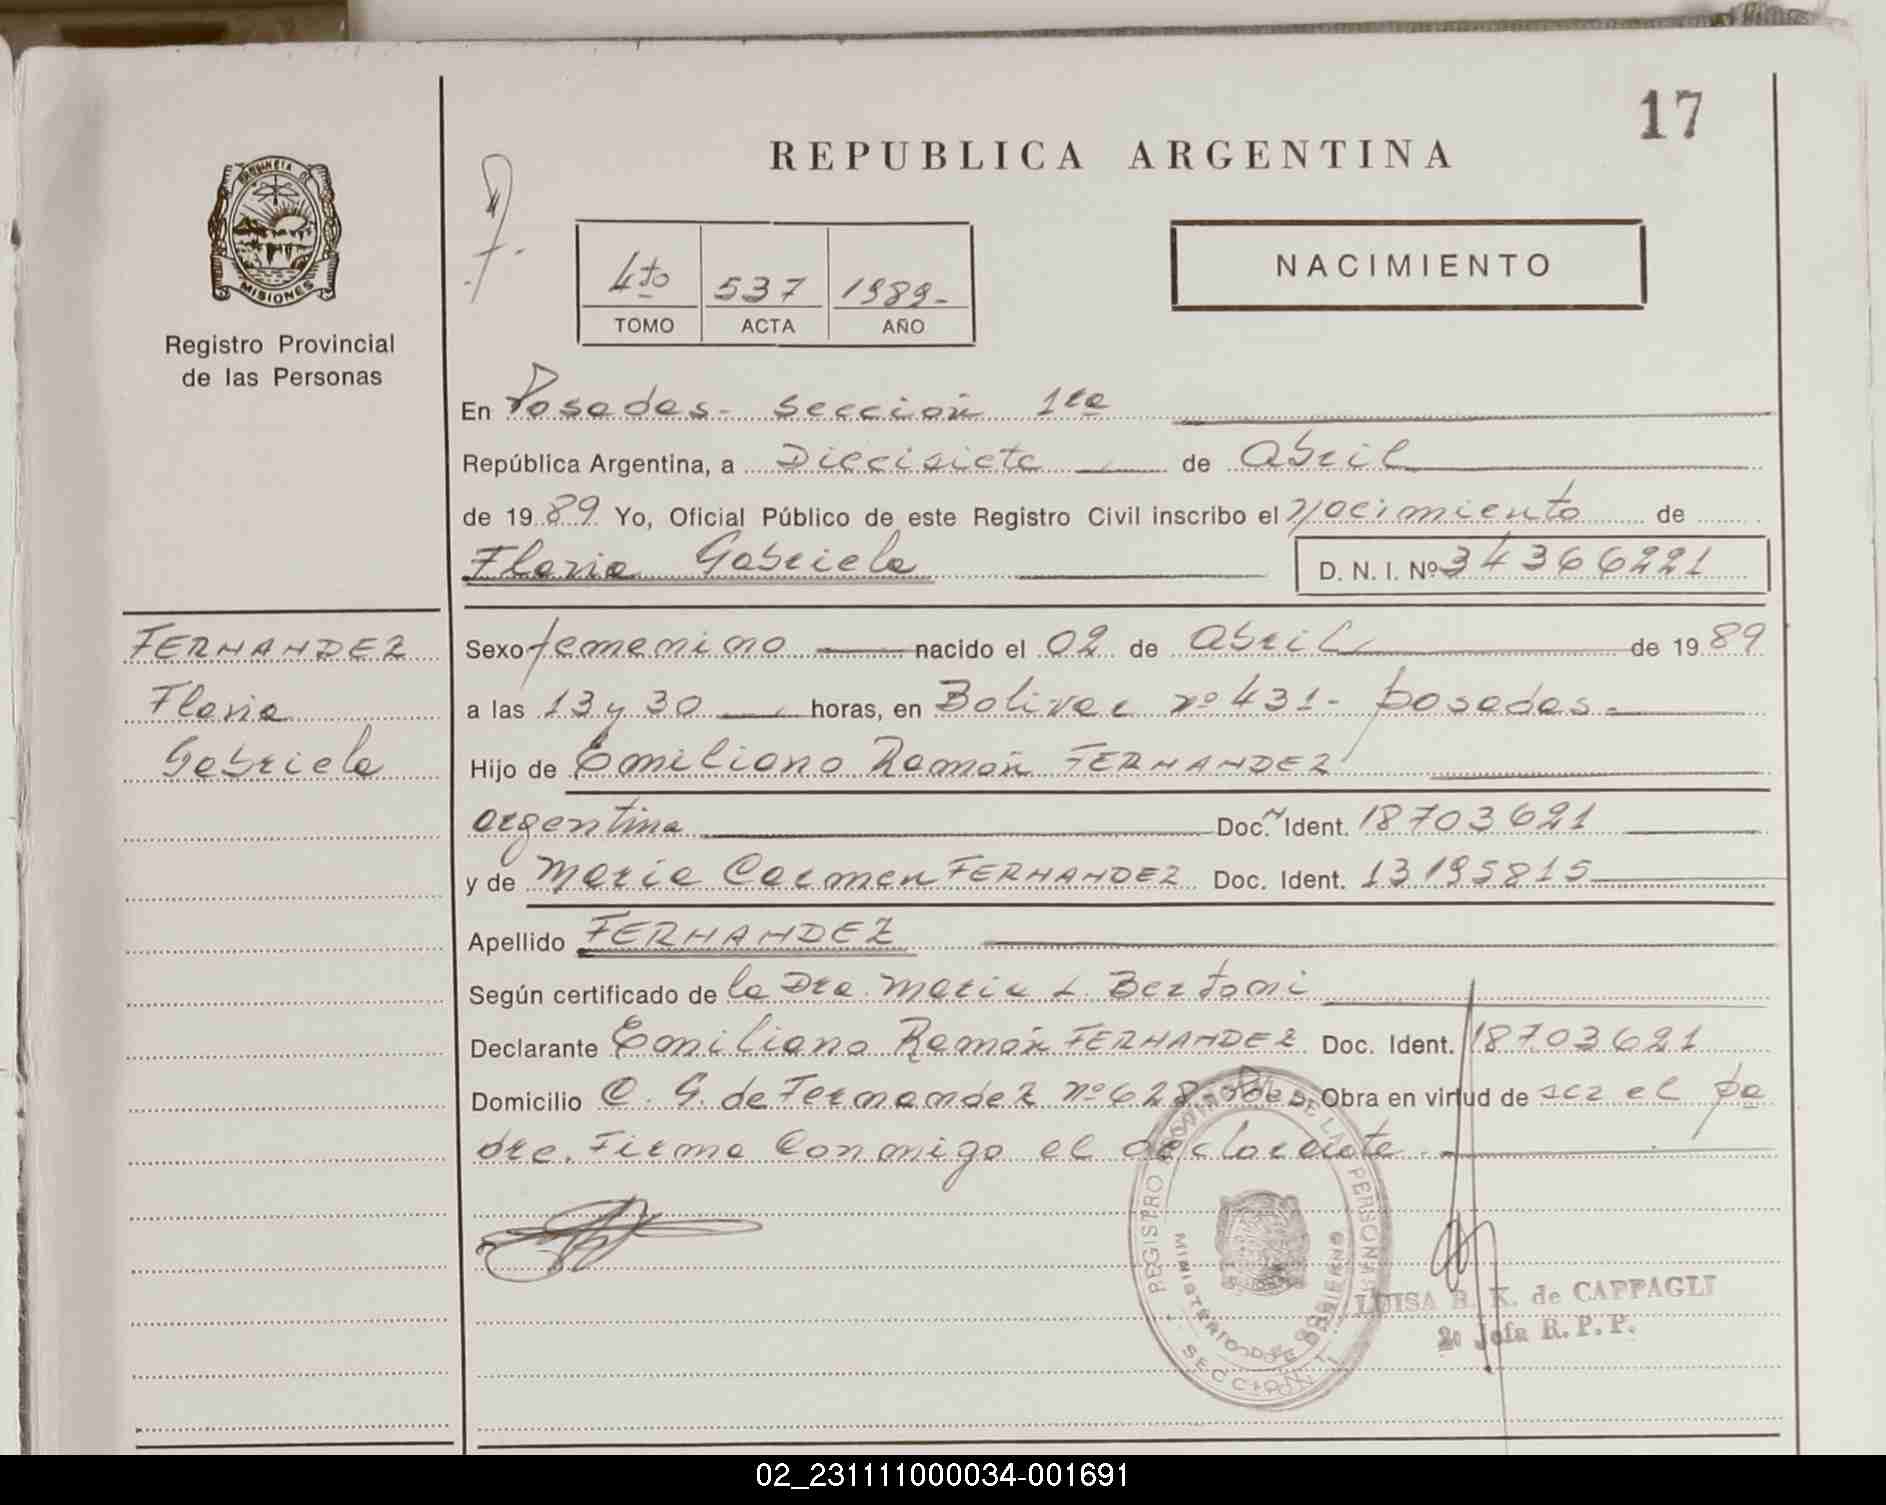 17
REPUBLICA ARGENTINA
PROVINCIA DE
MISIONES
Registro Provincial
de las Personas
4to 537 1989-
TOMO ACTA AÑO
NACIMIENTO
En Posadas- sección 1ra
República Argentina, a Diecisiete de Abril
de 1989 Yo, Oficial Público de este Registro Civil inscribo el nacimiento de
Flavia Gabriela D. N. I. Nº 34366221
FERNANDEZ
Flavia
Gabriela
Sexo femenino nacido el 02 de Abril de 1989
a las 13 y 30 horas, en Bolivar nº 431- posadas-
Hijo de Emiliano Ramón FERNANDEZ
argentina Doc. Ident. 18703621
y de Maria Carmen FERNANDEZ Doc. Ident. 13195815
Apellido FERNANDEZ
Según certificado de la Dra. Maria L. Bertoni
Declarante Emiliano Ramón FERNANDEZ Doc. Ident. 18703621
Domicilio C. G. de Fernandez nº 628 Pdas. Obra en virtud de ser el pa
dre. Firma Conmigo el declarante.
REGISTRO PROVINCIAL DE LAS PERSONAS
MINISTERIO DE GOBIERNO
SECCION 1
LUISA B. K. de CAFFAGLI
2º Jefa R. P. P.
02_231111000034-001691